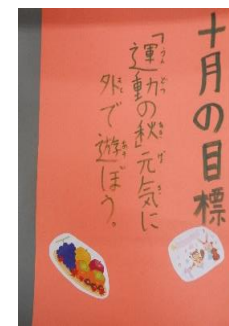 十月の目標
「運動の秋」元気に
外で遊ぼう。